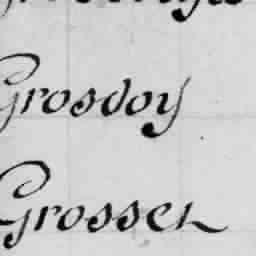 Grosdoy
Grosser